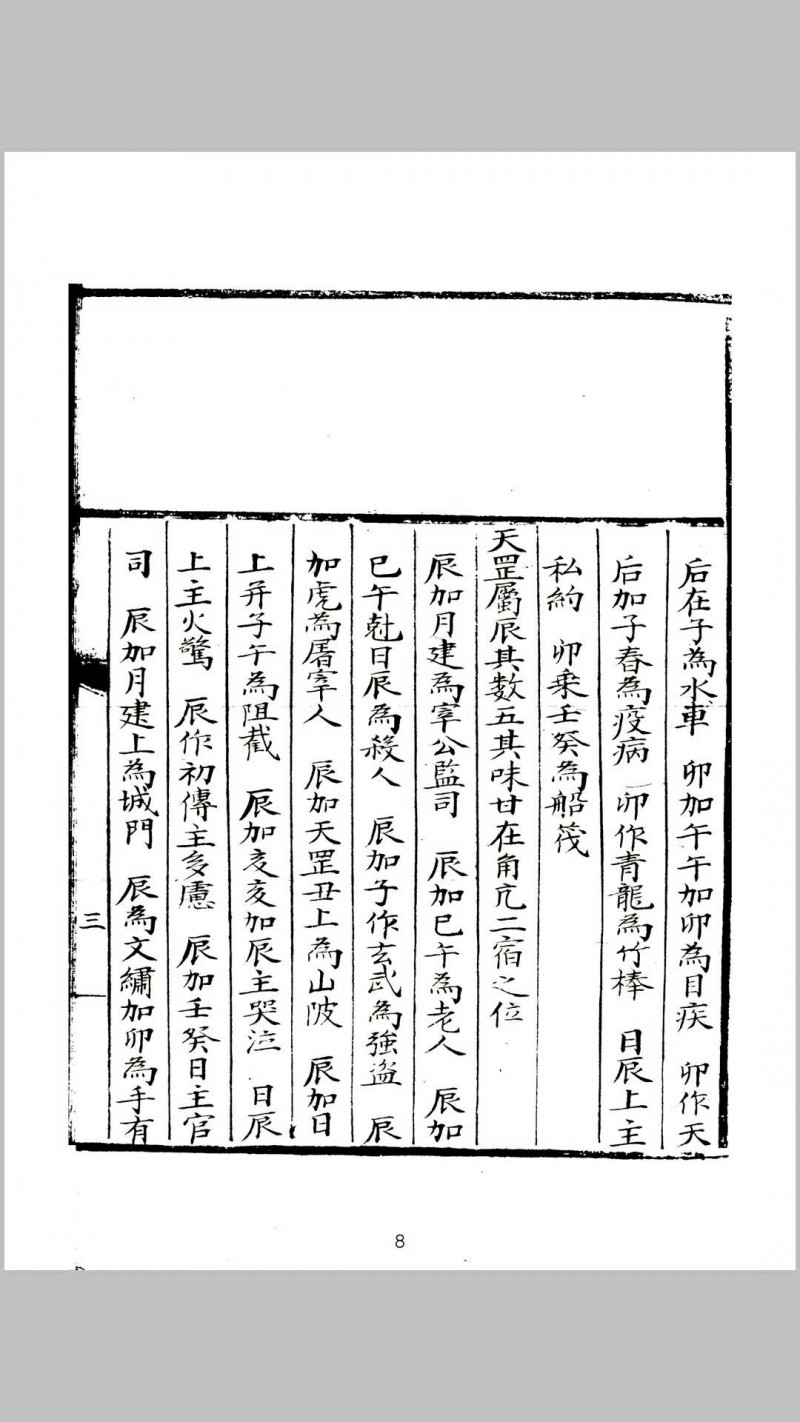 后在子為水車　卯加午午加卯為目疾　卯作天
后加子春為疫病　卯作青龍為竹棒　日辰上主
私約　卯乘壬癸為船筏
天罡屬辰其數五其味甘在角亢二宿之位
辰加月建為宰公監司　辰加巳午為老人　辰加
巳午尅日辰為殺人　辰加子作玄武為強盜　辰
加虎為屠宰人　辰加天罡丑上為山陂　辰加日
上并子午為阻截　辰加亥亥加辰主哭泣　日辰
上主火驚　辰作初傳主多慮　辰加壬癸日主官
司　辰加月建上為城門　辰為文繡加卯為手有
三
8